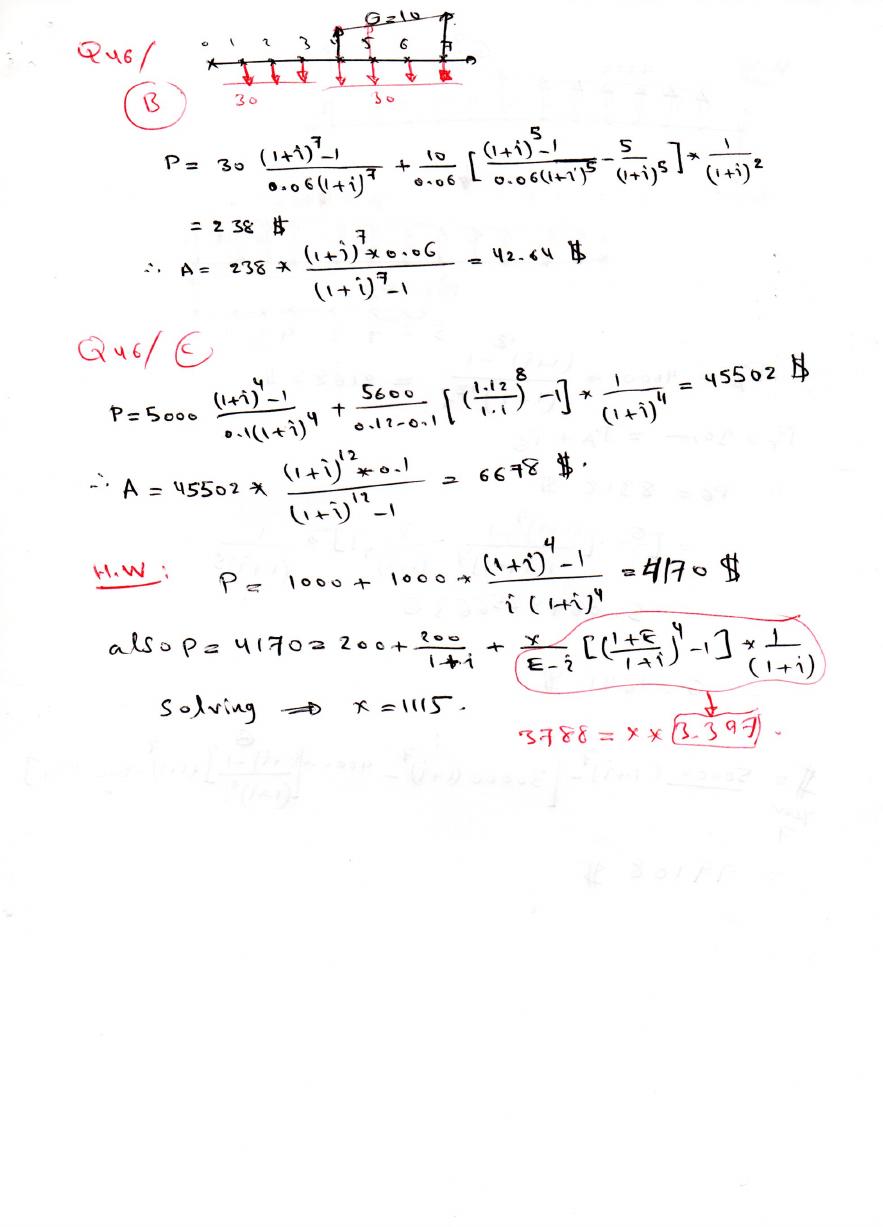 G=10
Q46/ 0 1 2 3 4 5 6 7
P P
B 30 30
P = 30 (1+i)^7-1 / 0.06(1+i)^7 + 10/0.06 [ (1+i)^5-1 / 0.06(1+i)^5 - 5/(1+i)^5 ] * 1/(1+i)^2
= 238 $
∴ A = 238 * (1+i)^7*0.06 / (1+i)^7-1 = 42.64 $
Q46/ C
P=5000 (1+i)^4-1 / 0.1(1+i)^4 + 5600/0.12-0.1 [ (1.12/1.1)^8 -1] * 1/(1+i)^4 = 45502 $
∴ A = 45502 * (1+i)^12*0.1 / (1+i)^12-1 = 6678 $.
H.W: P = 1000 + 1000 * (1+i)^4-1 / i(1+i)^4 = 4170 $
also P = 4170 = 200 + 200/1+i + x/E-i [(1+E/1+i)^4-1] * 1/(1+i)
Solving ⇒ x = 1115.
3788 = x * 3.397.